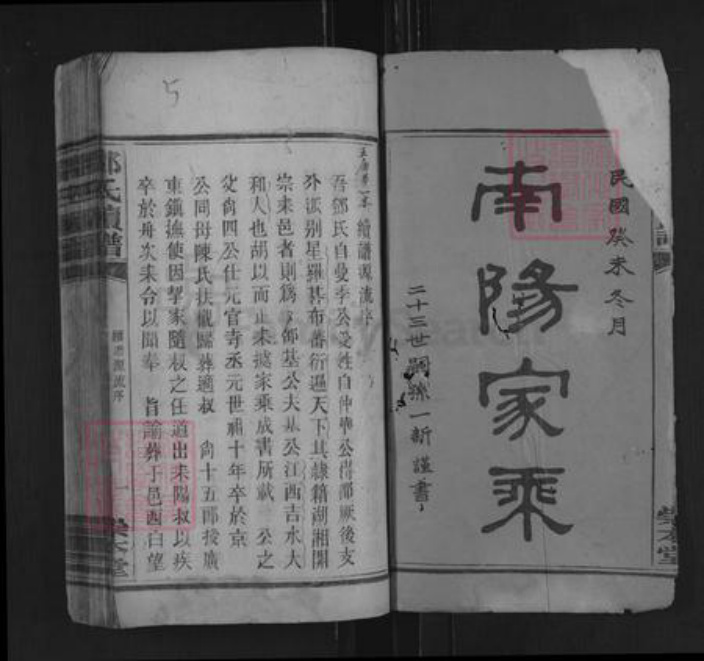 民國癸未冬月
南陽家乘
二十三世嗣孫一新謹書
敦本堂
五房第一本 續譜源流序
吾鄧氏自曼季公受姓自仲華公得鄧厥後支
分派別星羅碁布蕃衍遍天下其隸籍湖湘開
宗耒邑者則為
邹基公夫基公江西吉水大
和人也胡以而止耒據家乘成書所載 公之
父尚四公仕元官寺丞元世祖十年卒於京
公同母陳氏扶櫬歸葬適叔 尚十五郎授廣
東鎮撫使因挈家隨叔之任道出耒陽叔以疾
卒於舟次耒令以聞奉 旨諭葬于邑西白望
鄧氏續譜
續譜源流序
一
敦本堂
5